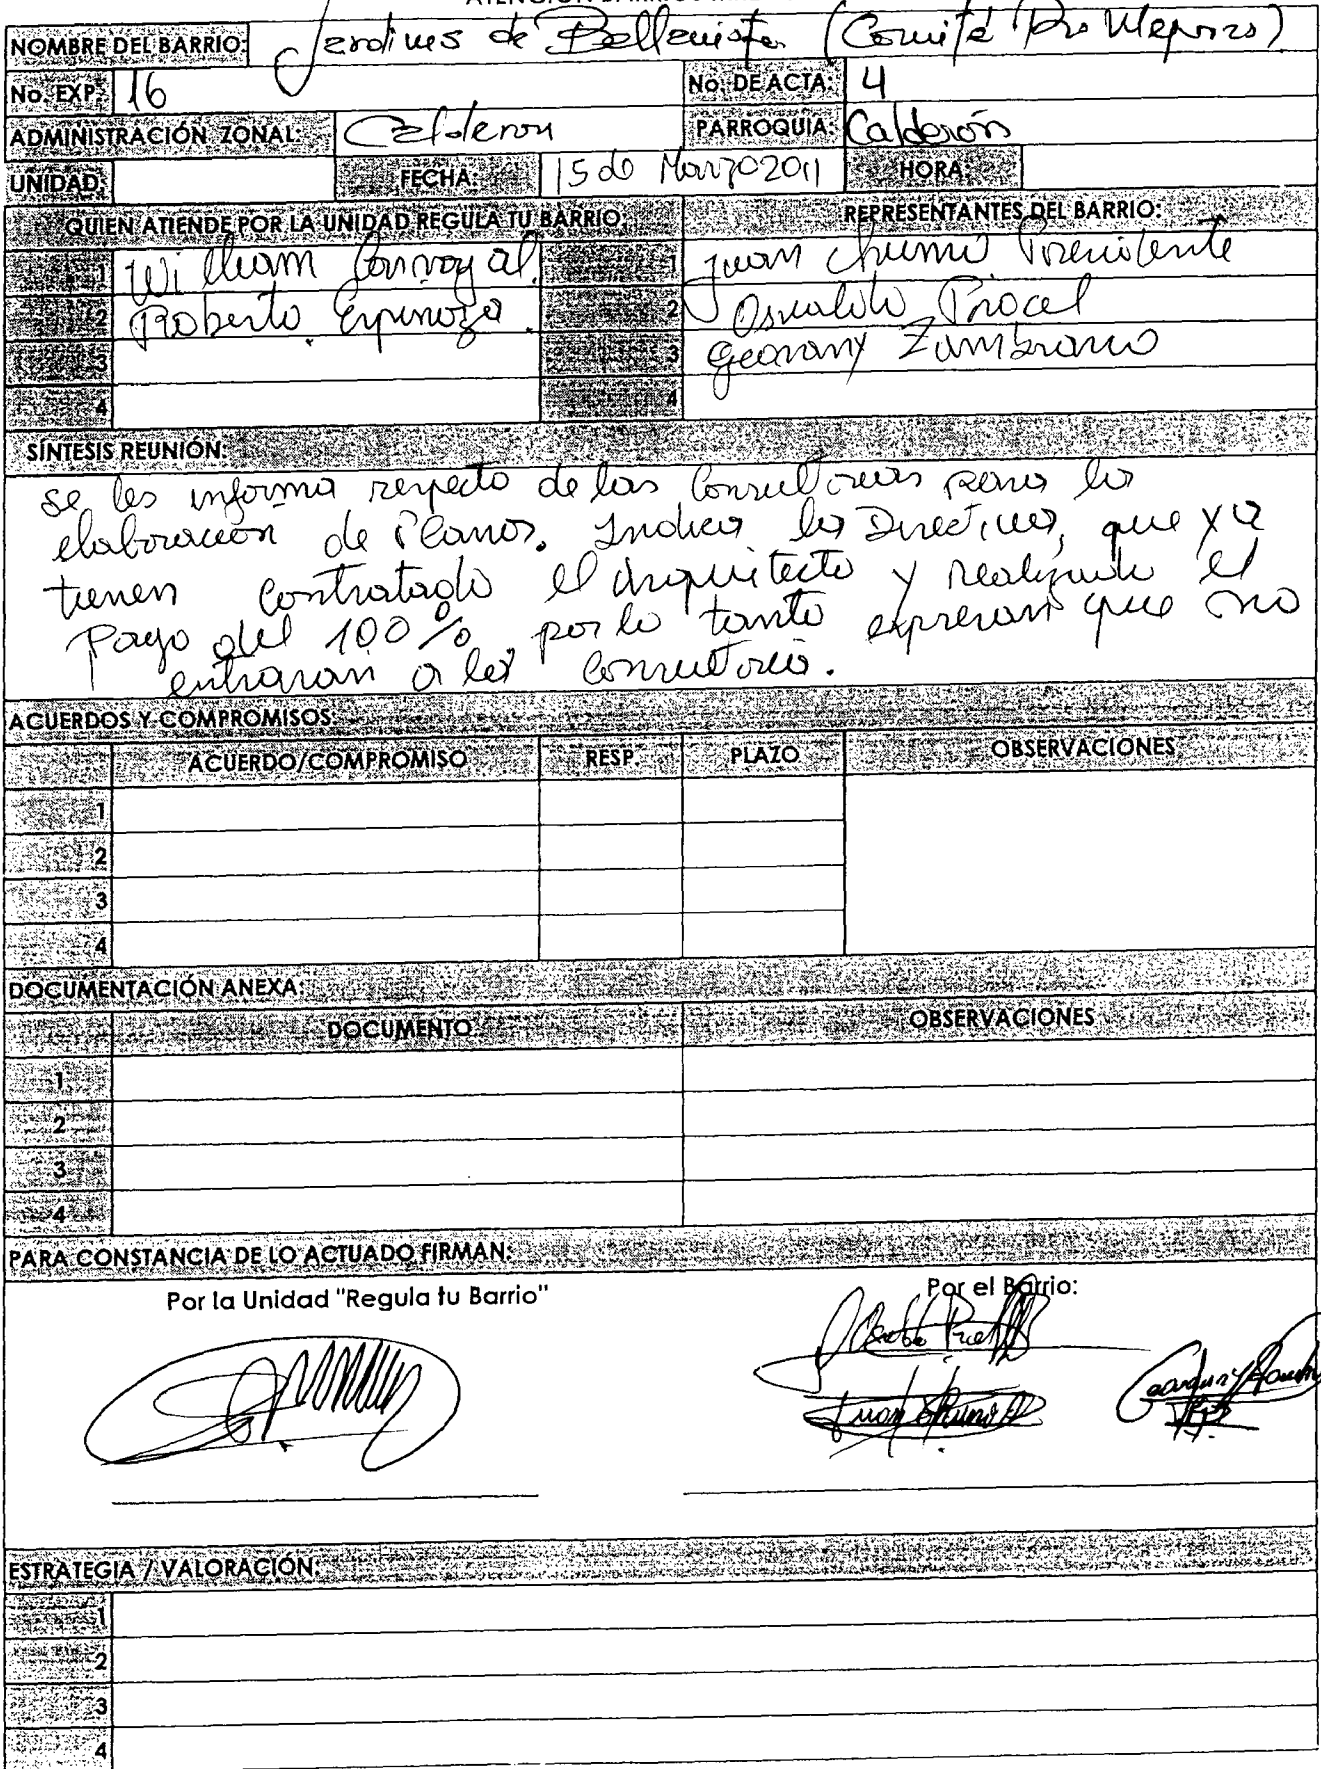 NOMBRE DEL BARRIO: Jardines de Bellavista (Comité Pro Mejoras)
No. EXP: 16 No. DE ACTA: 4
ADMINISTRACIÓN ZONAL: Calderon PARROQUIA: Calderón
UNIDAD: FECHA: 15 de Marzo 2011 HORA:
QUIEN ATIENDE POR LA UNIDAD REGULA TU BARRIO: REPRESENTANTES DEL BARRIO:
1 William Carvajal. 1 Juan Chumo Presidente
2 Roberto Espinoza. 2 Osvaldo Procel
3 3 Geovany Zambrano
4 4
SÍNTESIS REUNIÓN:
se les informa respecto de las Consultorias para la
elaboración de Planos. Indica la Directiva, que ya
tienen contratado el Arquitecto y realizado el
pago del 100% por lo tanto expresan que no
entraran a la Consultoria.
ACUERDOS Y COMPROMISOS:
ACUERDO/COMPROMISO RESP. PLAZO OBSERVACIONES
1
2
3
4
DOCUMENTACIÓN ANEXA:
DOCUMENTO OBSERVACIONES
1
2
3
4
PARA CONSTANCIA DE LO ACTUADO FIRMAN:
Por la Unidad "Regula tu Barrio" Por el Barrio:
ESTRATEGIA / VALORACIÓN:
1
2
3
4